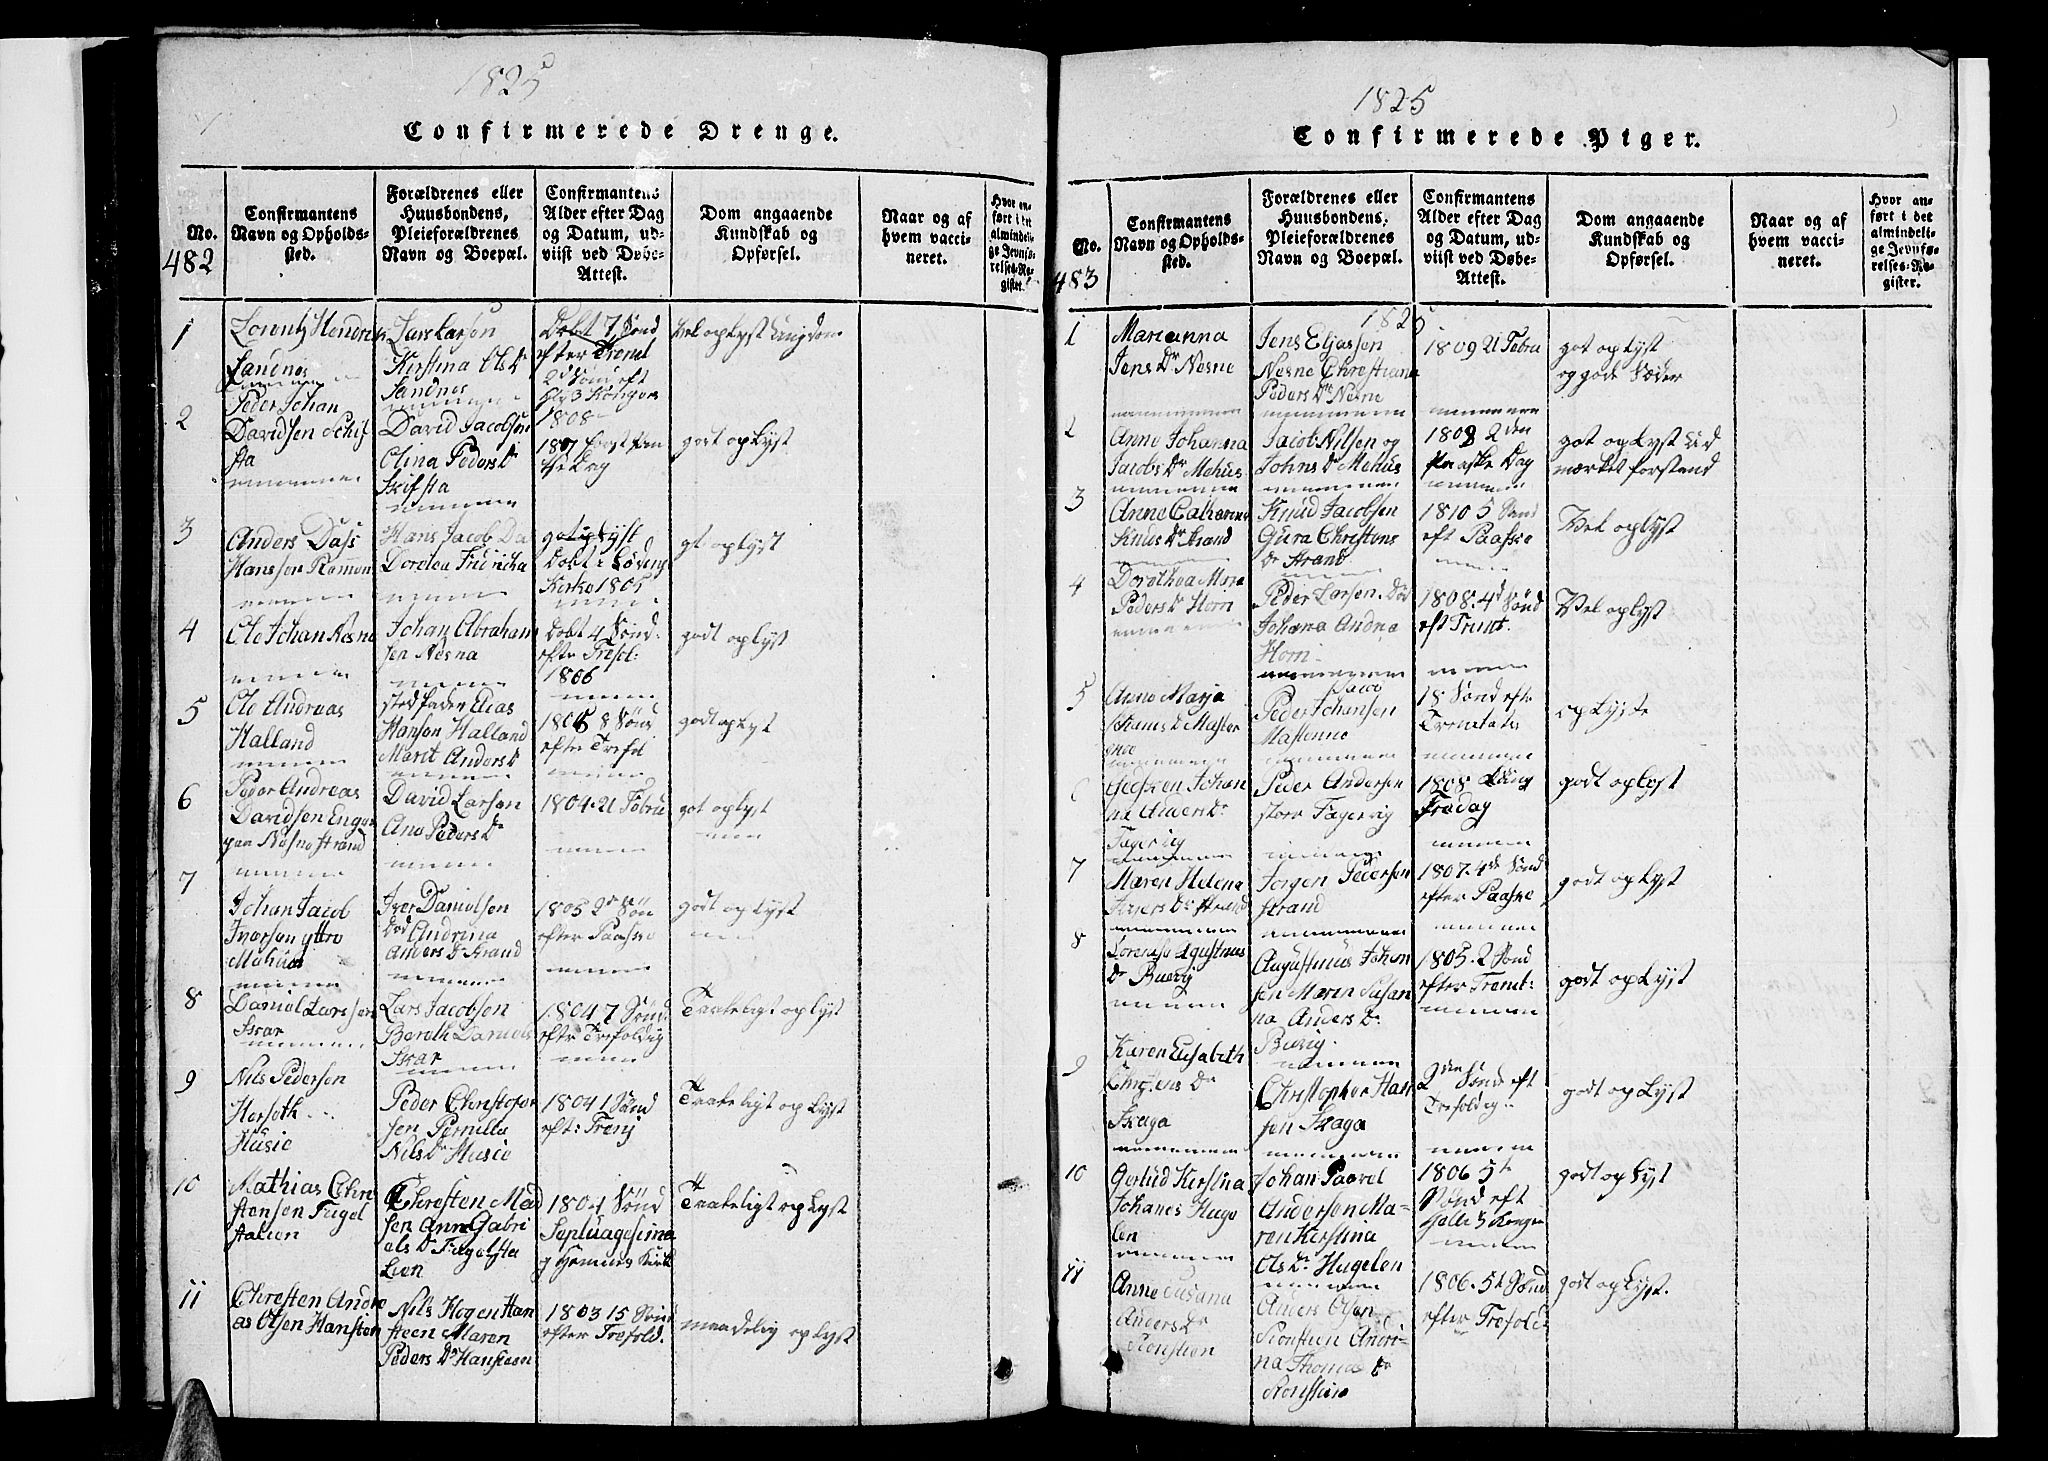 1825
Confirmerede Drenge.
No.
482
Confirmantens
Navn og Opholds-
sted.
Forældrenes eller
Huusbondens,
Pleieforældrenes
Navn og Boepæl.
Confirmantens
Alder efter Dag
og Datum, ud-
viist ved Døbe-
Attest.
Dom angaaende
Kundskab og
Opførsel.
Naar og af
hvem vacci-
neret.
Hvor an-
ført i det
almindeli-
ge Jevnfø-
relses-Re-
gister.
1
Lorentz Hendrik
Sandnes
Lars Larsen
Kirstina Ols Dr
Sandnes
Døbt 7 Sønd
efter Trenit
2d Søn eft
Hlg 3 Konger
1808
vel oplyst
2
Peder Johan
Davidsen Schif
sta
David Jacobsen
Olina Peders Dr
Skifsta
1807 første Pen
tse Dag
godt oplyst
3
Anders Dass
Hanssen
Hans Jacob Da
Dordea Fridricha
got oplyst
Døbt i
Kirke 1805
gt oplyst
4
Ole Johan Nesne
Johan Abraham
sen Nesna
Døbt 4 Sønd
efter Trefol:
1806
godt oplyst
5
Ole Andreas
Halland
stedfaden Elias
Hanson Halland
Marit Anders Dr
1806 8 Sønd
efter Trefol
godt oplyst
6
Peder Andreas
Davidsen Enger
paa Nesne strand
David Larson
Ane Peders Dr
1804. 21 Febru
got oplyst
7
Johan Jacob
Iverson yttro
Iver Danielsen
Død Andrina
Anders Dr Strand
1805 2 Søn
efter Paasse
godt oplyst
8
Daniel Larssen
Skar
Lars Jacobsen
Bereth Daniels
Skar
1804 7 Sønd
efter Trefoldig
Taateligt oplyst
9
Nils Pederson
Herseth
Husie
Peder Christofer
sen Pernilla
Nils Dr Husie
1804 1 Sønd
eft: Trenj
Taateligt oplyst
10
Mathias Chri
stensen Fugel
stalien
Chresten Mad
sen Anne Gabri
els Dr Fugelsta
Lien
1804 Sønd
Septuagesima
j Hemnes Kirk
Taateligt oplyst
11
Chresten Andre
as Olsen Hansten
Nils Hogen Han
steen Maren
Peders Dr Hansteen
1803 15 Sønd
efter Trefold.
maadelig oplyst
1825
Confirmerede Piger.
No.
483
Confirmantens
Navn og Opholds-
sted.
Forældrenes eller
Huusbondens,
Pleieforældrenes
Navn og Boepæl.
Confirmantens
Alder efter Dag
og Datum, ud-
viist ved Døbe-
Attest.
Dom angaaende
Kundskab og
Opførsel.
Naar og af
hvem vacci-
neret.
Hvor an-
ført i det
almindeli-
ge Jevnfø-
relses-Re-
gister.
1825
1
Marianna
Jens Dr Nesne
Jens Eljassen
Nesne Christiana
Peders Dr Nesne
1809 21 Febru
got oplyst
og gode Sæder
2
Anne Johanna
Jacobs Dr Mehus
Jacob Nilsen og
Johns Dr Mehus
1808 2den
Paaske Dag
got oplyst ud
mærket forstand
3
Anne Catharine
Knus Dr Strand
Knud Jacobsen
Gura Christens
Dr Strand
1810 5 Sønd
eft Paasse
Vel oplyst
4
Dorothea Mare
Peders Dr Horn
Peder Larsen Død
Johana Andrea
Horn
1808. 4d Sønd
eft Trint.
Vel oplyst
5
Anne Marja
Peder Johansen
18 Sønd efte
Trenitatis
oplyste
Johan
na Anders Dr
Fagervig
Peder Andersen
store Fagervig
1808 Lang
Fredag
godt oplyst
7
Maren Helena
Jørgens Dr Strand
Jorgen Pederson
strand
1807. 4de Sønd
efter Paasse
godt oplyst
8
Lorensa Agustinus
Dr Buvig
Augustinus Johan
sen Maren Susan
na Anders Dr
Buvig
1805. 2 Sønd
efter Trenit:
godt oplyst
9
Karen Elisabeth
Dr
Skaga
Christopher Han
sen Skaga
2den Sønd eft
Trefoldig
godt oplyst
10
Gerlud Kirstina
Johanes Huge
len
Johan Paavel
Andersen Ma-
ren Kirstina
Ols Dr Hugelen
1806 5t
Sønd eft
Helle 3 Konger
godt oplyst
11
Anne Susana
Anders Dr
Ronstien
Anders Olsen
Ronstien Andri-
na Thomas Dr
Ronstien
1806. 5t Sønd
efter Trefold:
godt oplyst.